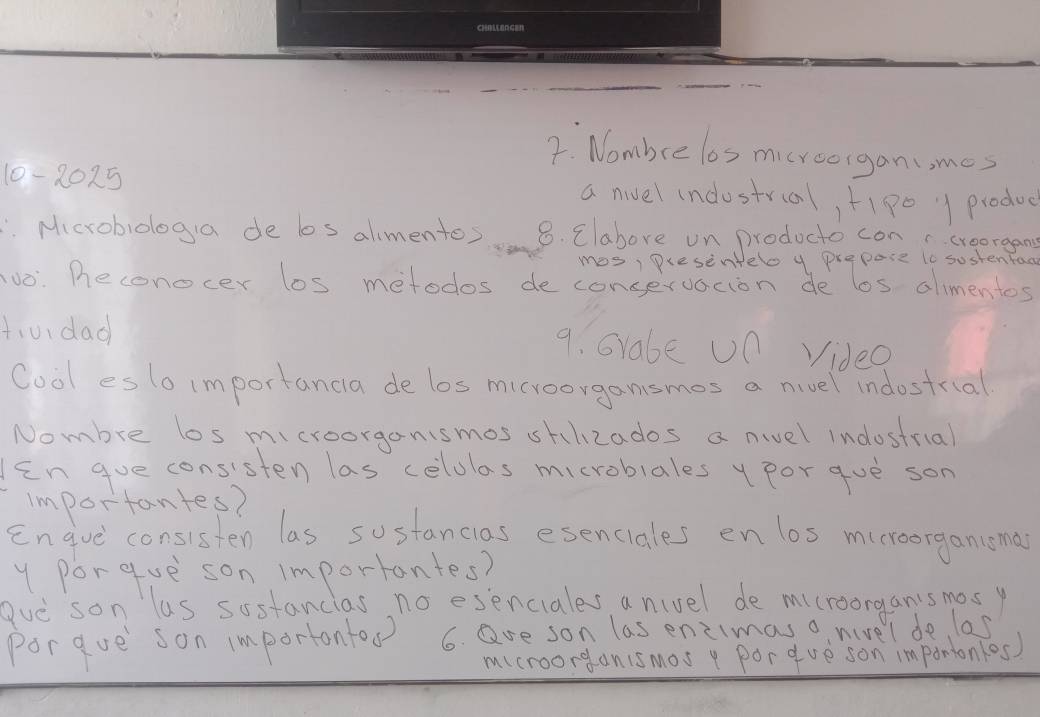 CHALLENGER
10-2025
: Microbiologia de los alimentos
Reconocer los métodos de conservación de los alimentos
tividad
Cuál es la importancia de los microorganismos a nivel industrial.
Nombre los microorganismos utilizados a nivel industrial
En que consisten las células microbiales y por qué son
importantes?
En qué consisten las sustancias esenciales en los microorganismos
y por qué son importantes?
Qué son las sustancias no esenciales a nivel de microorganismos y
por qué son importantes?
6. Que son las enzimas a nivel de las
microorganismos y por qué son importantes)
7. Nombre los microorganismos
a nivel industrial, tipo y produc
8. Elabore un producto con
mos, preséntelo y prepare la sustentac
9. Grabe un Video